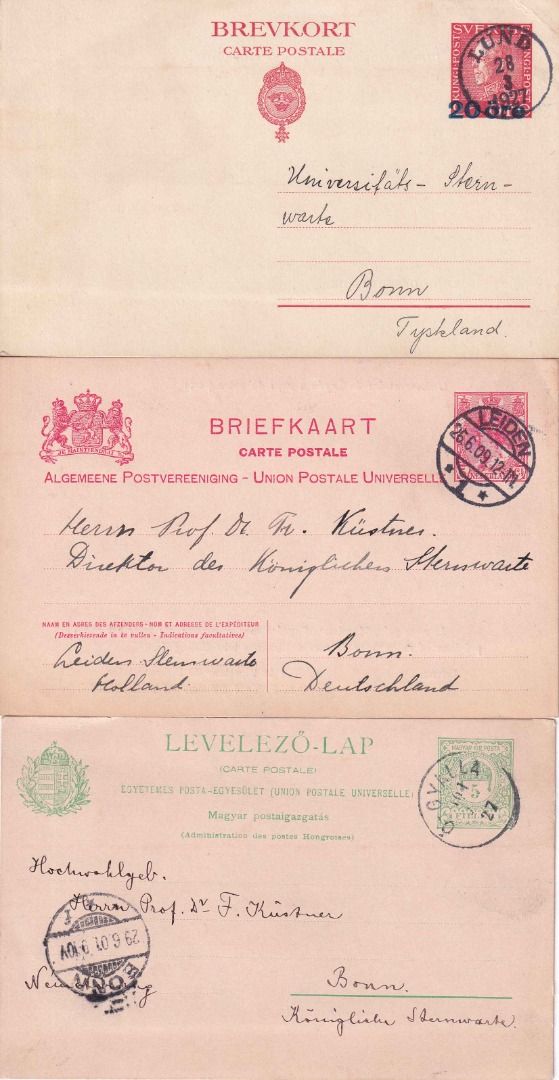 BREVKORT
CARTE POSTALE
SVERIGE
KUNGL·POST
KUNGL·POST
LUND
28
3
192
20 öre
Universitäts- Stern-
warte
Bonn
Tyskland.
JE MAINTIENDRAI
BRIEFKAART
CARTE POSTALE
ALGEMEENE POSTVEREENIGING - UNION POSTALE UNIVERSELLE
LEIDEN
26.6.09.12-
* 1 *
Herrn Prof. Dr. Fr. Küstner.
Direktor der Königlichen Sternwarte
NAAM EN ADRES DES AFZENDERS - NOM ET ADRESSE DE L'EXPÉDITEUR
(Desverkiezende in te vullen - Indications facultatives)
Leiden Sternwarte
Holland.
Bonn.
Deutschland
LEVELEZŐ-LAP
(CARTE POSTALE)
EGYETEMES POSTA-EGYESÜLET (UNION POSTALE UNIVERSELLE)
Magyar postaigazgatás
(Administration des postes Hongroises)
MAGYAR KIR. POSTA
5
FILLÉR
Ó GYALLA
27
Hochwohlgeb.
Herrn Prof. Dr F. Küstner
BONN
29.6.01.9-10V
Bonn.
Königliche Sternwarte.